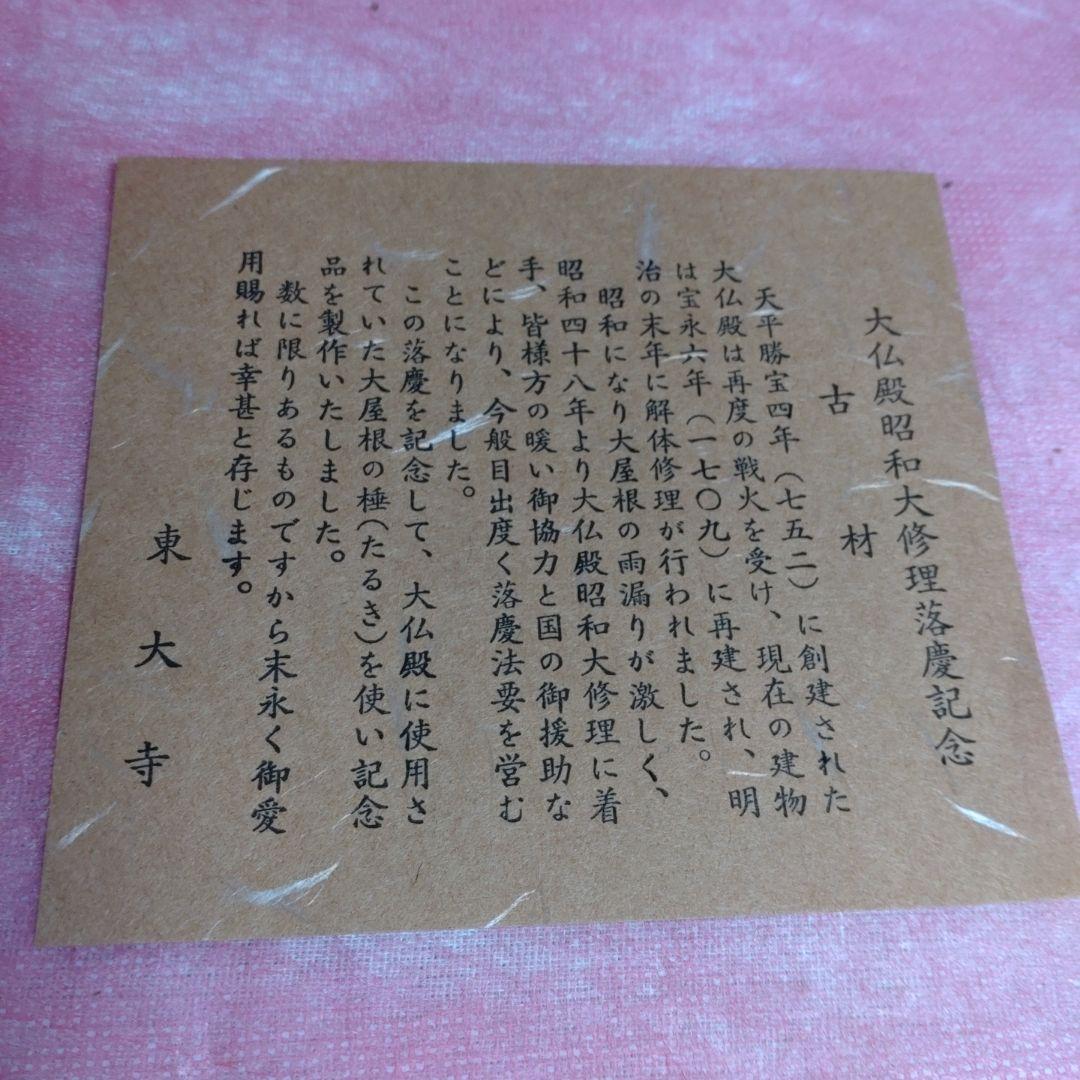 大仏殿昭和大修理落慶記念
古材
天平勝宝四年（七五二）に創建された
大仏殿は再度の戦火を受け、現在の建物
は宝永六年（一七〇九）に再建され、明
治の末年に解体修理が行われました。
昭和になり大屋根の雨漏りが激しく、
昭和四十八年より大仏殿昭和大修理に着
手、皆様方の暖い御協力と国の御援助な
どにより、今般目出度く落慶法要を営む
ことになりました。
この落慶を記念して、大仏殿に使用さ
れていた大屋根の棰(たるき)を使い記念
品を製作いたしました。
数に限りあるものですから末永く御愛
用賜れば幸甚と存じます。
東大寺